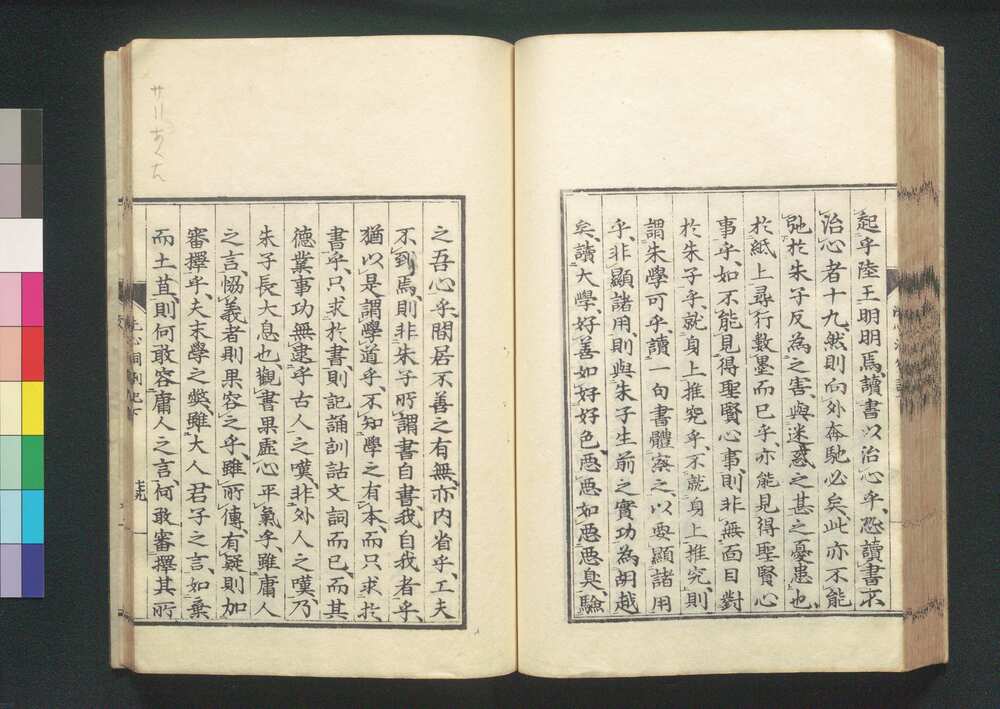 起乎、陸王明明焉、讀書以治心乎、恐讀書不
治心者十九、然則向外奔馳必矣、此亦不能
弛於朱子反為之害、與迷惑之甚之憂患也、
於紙上尋行數墨而已乎、亦能見得聖賢心
事乎、如不能見得聖賢心事、則非無面目對
於朱子乎、就身上推究乎、不就身上推究、則
謂朱學可乎、讀一句書體察之、以要顯諸用
乎、非顯諸用、則與朱子生前之實功為胡越
矣、讀大學、好善如好好色、惡惡如惡惡臭、驗
之吾心乎、間居不善之有無、亦内省乎、工夫
不到焉、則非朱子所謂書自書、我自我者乎、
猶以是謂學道乎、不知學之有本、而只求於
書乎、只求於書、則記誦訓詁文詞而已、而其
德業事功無逮乎古人之嘆、非外人之嘆、乃
朱子長大息也、觀書果虛心平氣乎、雖庸人
之言、愜義者則果容之乎、雖所傳、有疑則加
審擇乎、夫末學之弊、雖大人君子之言、如棄
而土苴、則何敢容庸人之言、何敢審擇其所